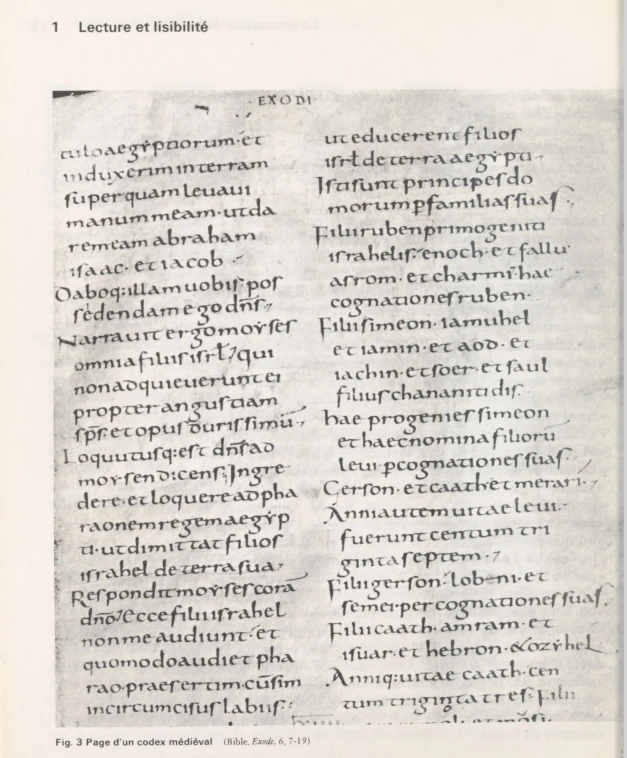 1 Lecture et lisibilité
· EXODI
culo aegyptiorum· et
induxerim in terram
super quam leuaui
manum meam· ut da
rem eam abraham
isaac· et iacob·
Daboq: illam uobis· pos
sedendam ego dn̄s·,
Narrauit ergo moyses
omnia filiis isrł, qui
non adquieuerunt ei
propter angustiam
sp̄s· et opus durissimū,
Locutusq: est dn̄s ad
moysen dicens; Ingre
dere· et loquere ad pha
raonem regem aegyp
ti· ut dimittat filios
israhel de terra sua,
Respondit moyses corā
dn̄o; Ecce filii israhel
non me audiunt· et
quomodo audiet pha
rao· praesertim cūsim
incircumcisus labiis·:
ut educerent filios
isrł de terra aegypti·,
Isti sunt principes do
morum ꝑ familias suas·,
Filii ruben primogeniti
israhelis· enoch· et fallu·
asrom· et charmi· hae
cognationes ruben·
Filii simeon· iamuhel
et iamin· et aod· et
iachin· et soer· et saul
filius chananitidis·
hae progenies simeon
et haec nomina filiorū
leui· ꝑ cognationes suas·
Gerson· et caath· et merari·,
Anni autem uitae leui·
fuerunt centum tri
ginta septem·,
Filii gerson· lobeni· et
semei· per cognationes suas·
Filii caath· amram· et
isuar· et hebron· & ozyhel
Anniq: uitae caath· cen
tum triginta tres· Filii
Fig. 3 Page d'un codex médiéval (Bible, Exode, 6, 7-19)